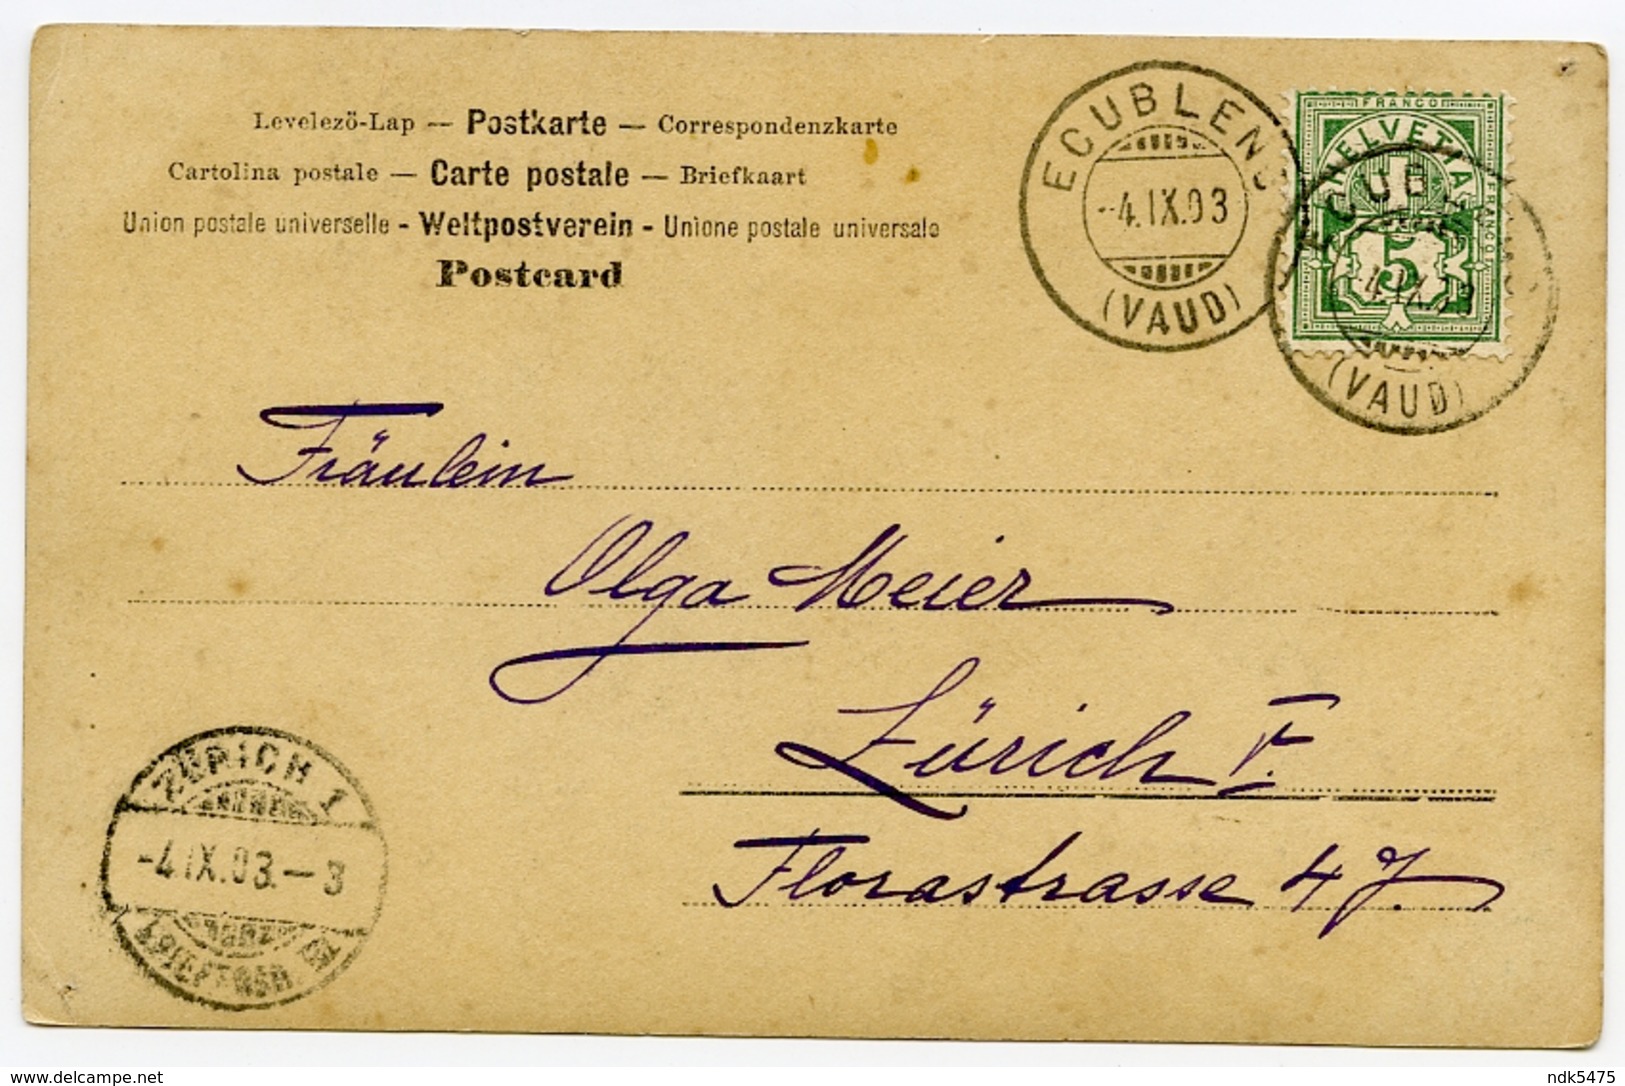 Levelező-Lap — Postkarte — Correspondenzkarte
Cartolina postale — Carte postale — Briefkaart
Union postale universelle - Weltpostverein - Unione postale universale
Postcard
ECUBLENS
-4.IX.03
(VAUD)
FRANCO
HELVETIA
FRANCO
5
-4.IX.03
(VAUD)
Fräulein
Olga Meier
Zürich V.
Florastrasse 47.
ZÜRICH 1
-4.IX.03.—3
BRIEFTRÄGER
delcampe.net
ndk5475